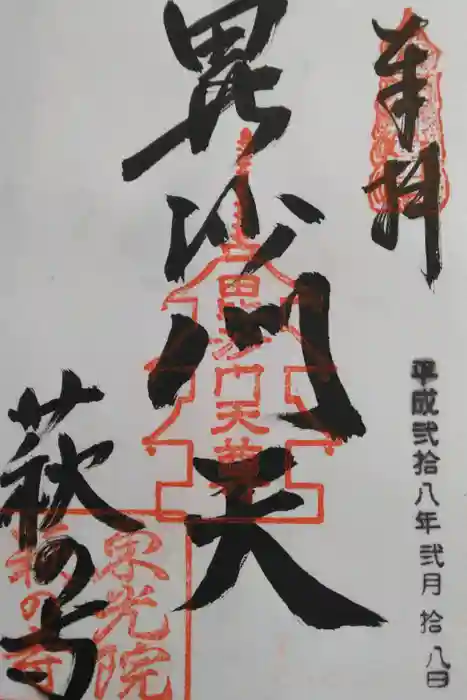 奉拝
平成弐拾八年弐月拾八日
毘沙門天
毘沙門天
萩の寺
東光院
萩の寺